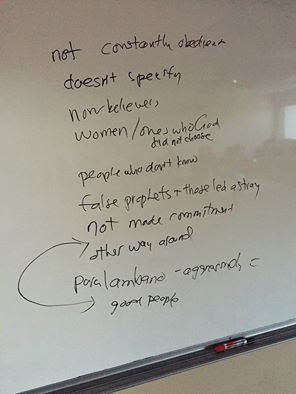 not constantly obedient
doesn't specify
nonbelievers
women/ones who God
did not choose
people who don't know
false prophets + those led astray
not made commitment
other way around
paralambano - aggressively =
good people